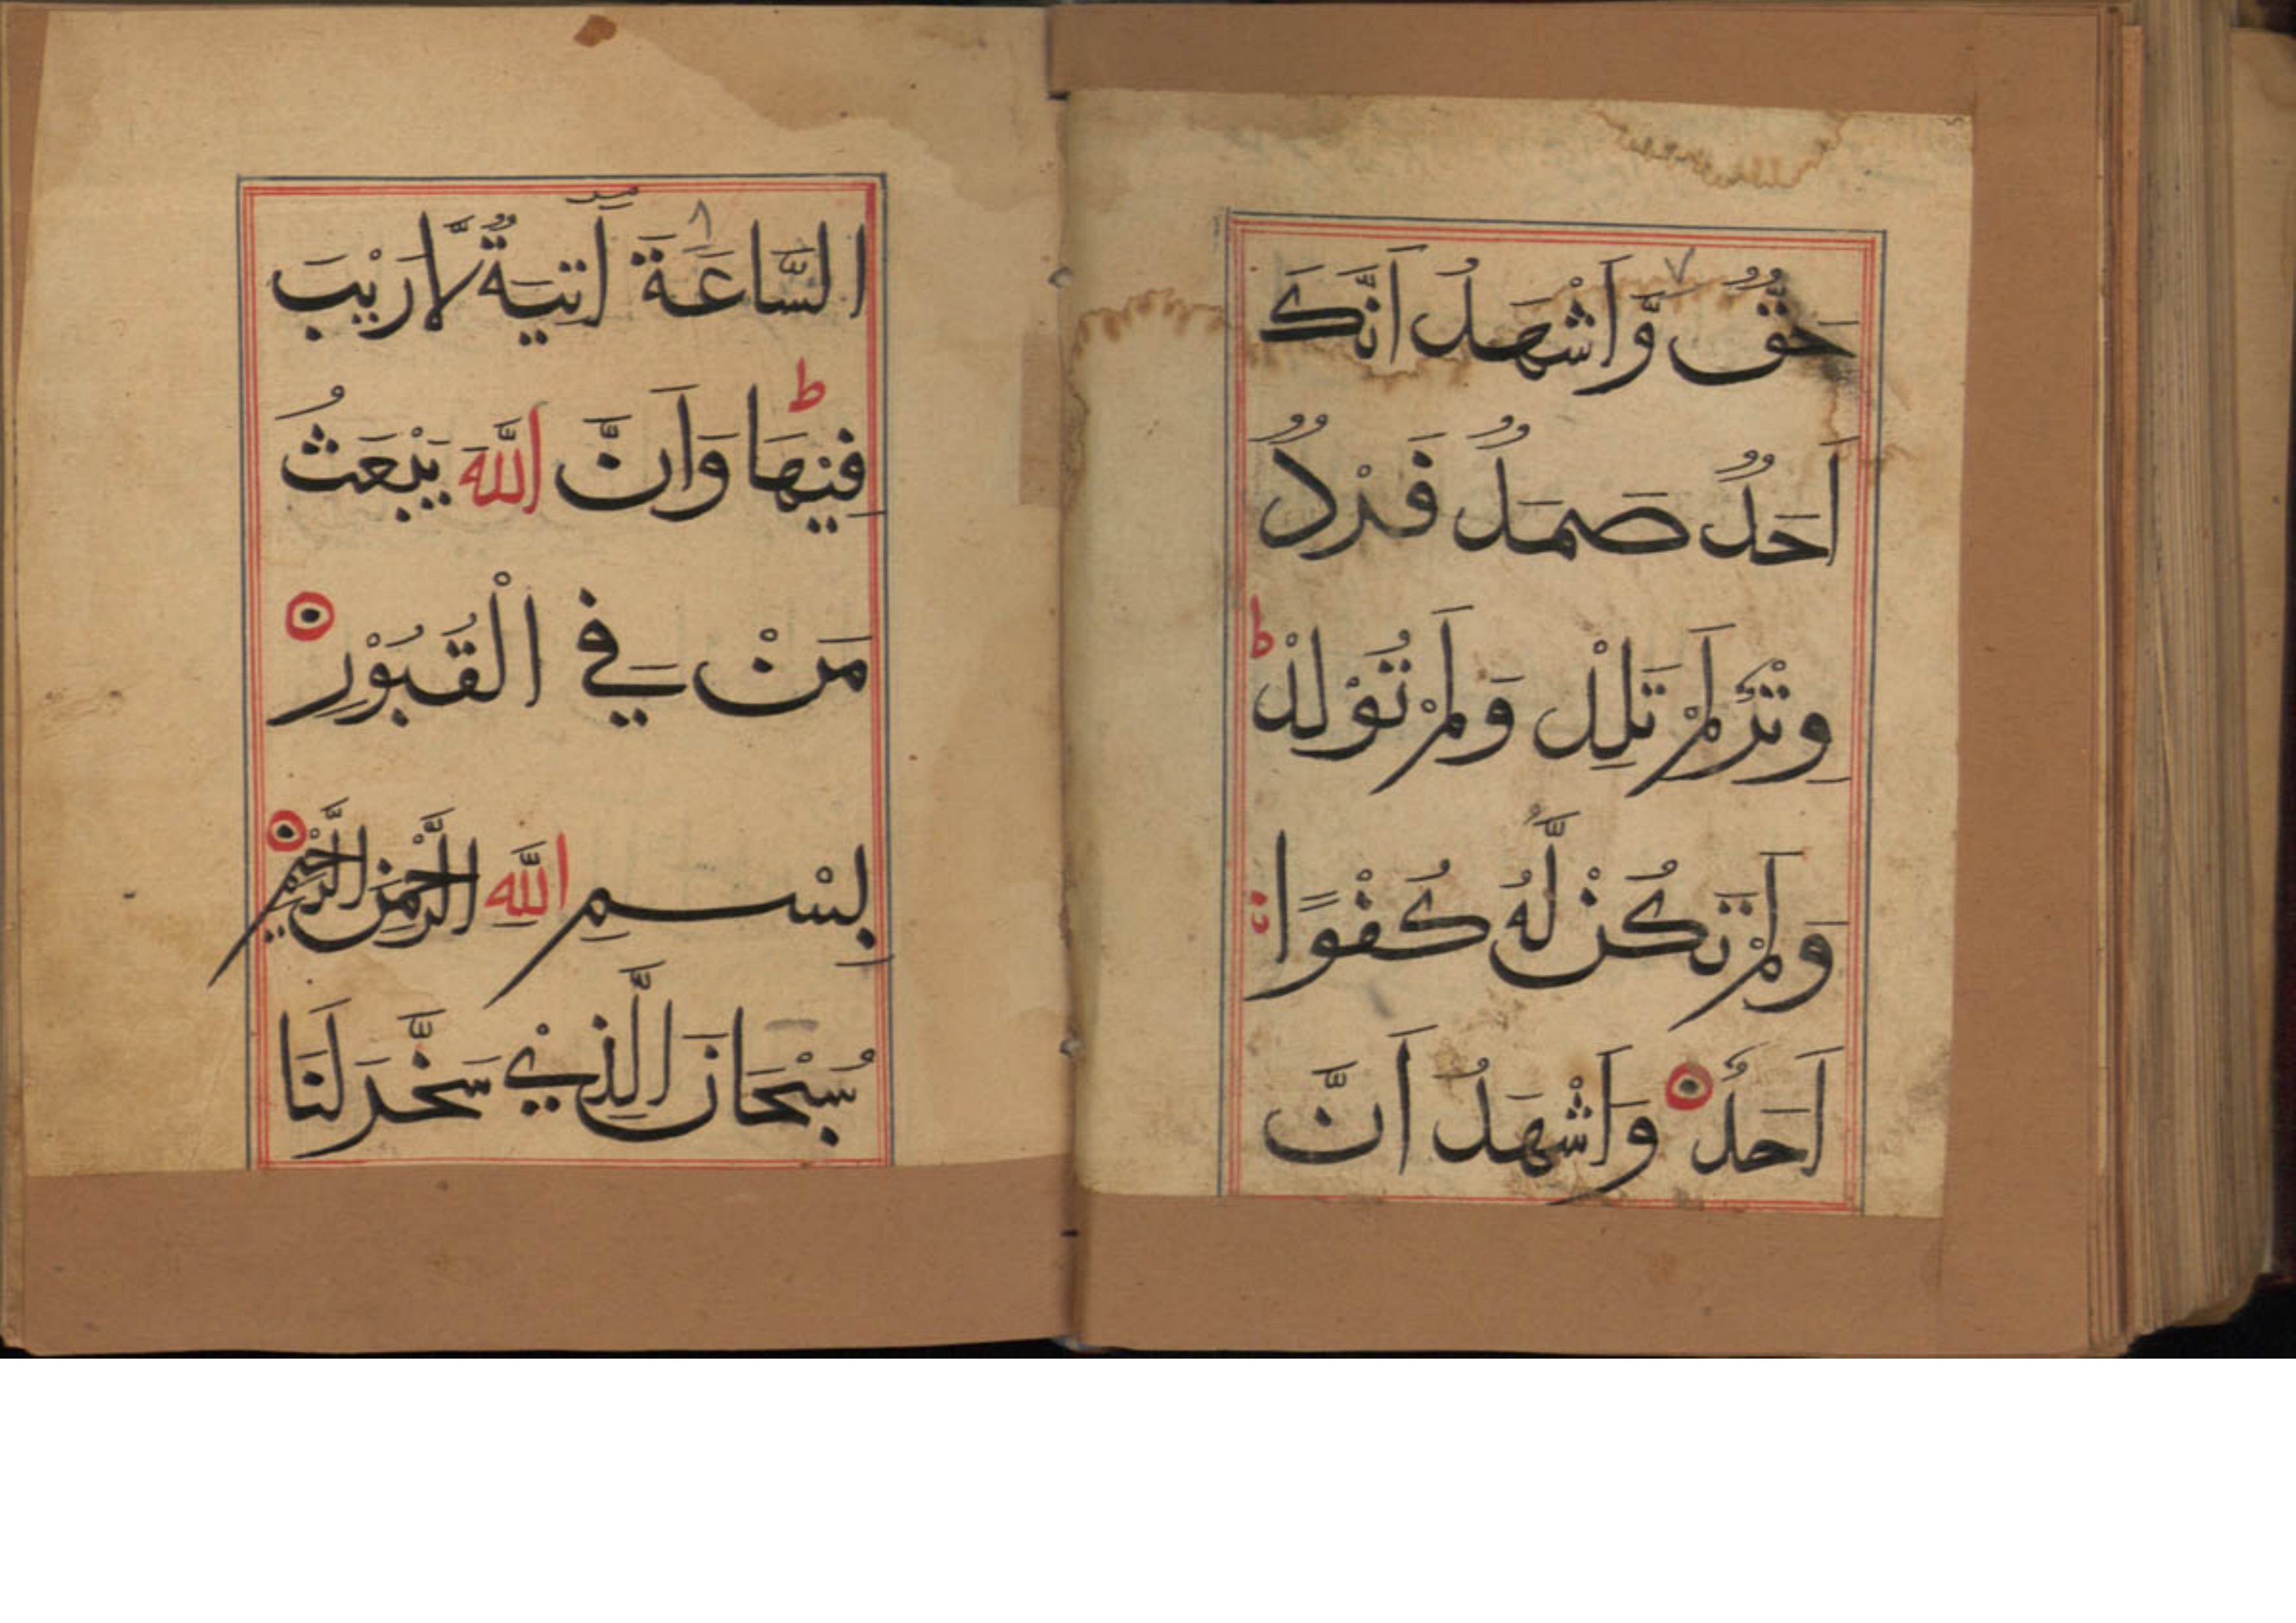 ٧
حَقٌّ وَّاَشْهَدُ اَنَّكَ
اَحَدٌ صَمَدٌ فَرْدٌ
وِتْرٌ لَمْ تَلِدْ وَلَمْ تُوْلَدْ ط
وَلَمْ تَكُنْ لَّهُ كُفْوًا
اَحَدٌ وَاَشْهَدُ اَنَّ
٨
السَّاعَةَ اٰتِيَةٌ لَّا رَيْبَ
فِيْهَا ط وَاَنَّ اللّٰهَ يَبْعَثُ
مَنْ فِي الْقُبُوْرِ
بِسْمِ اللّٰهِ الرَّحْمٰنِ الرَّحِيْمِ
سُبْحَانَ الَّذِيْ سَخَّرَ لَنَا